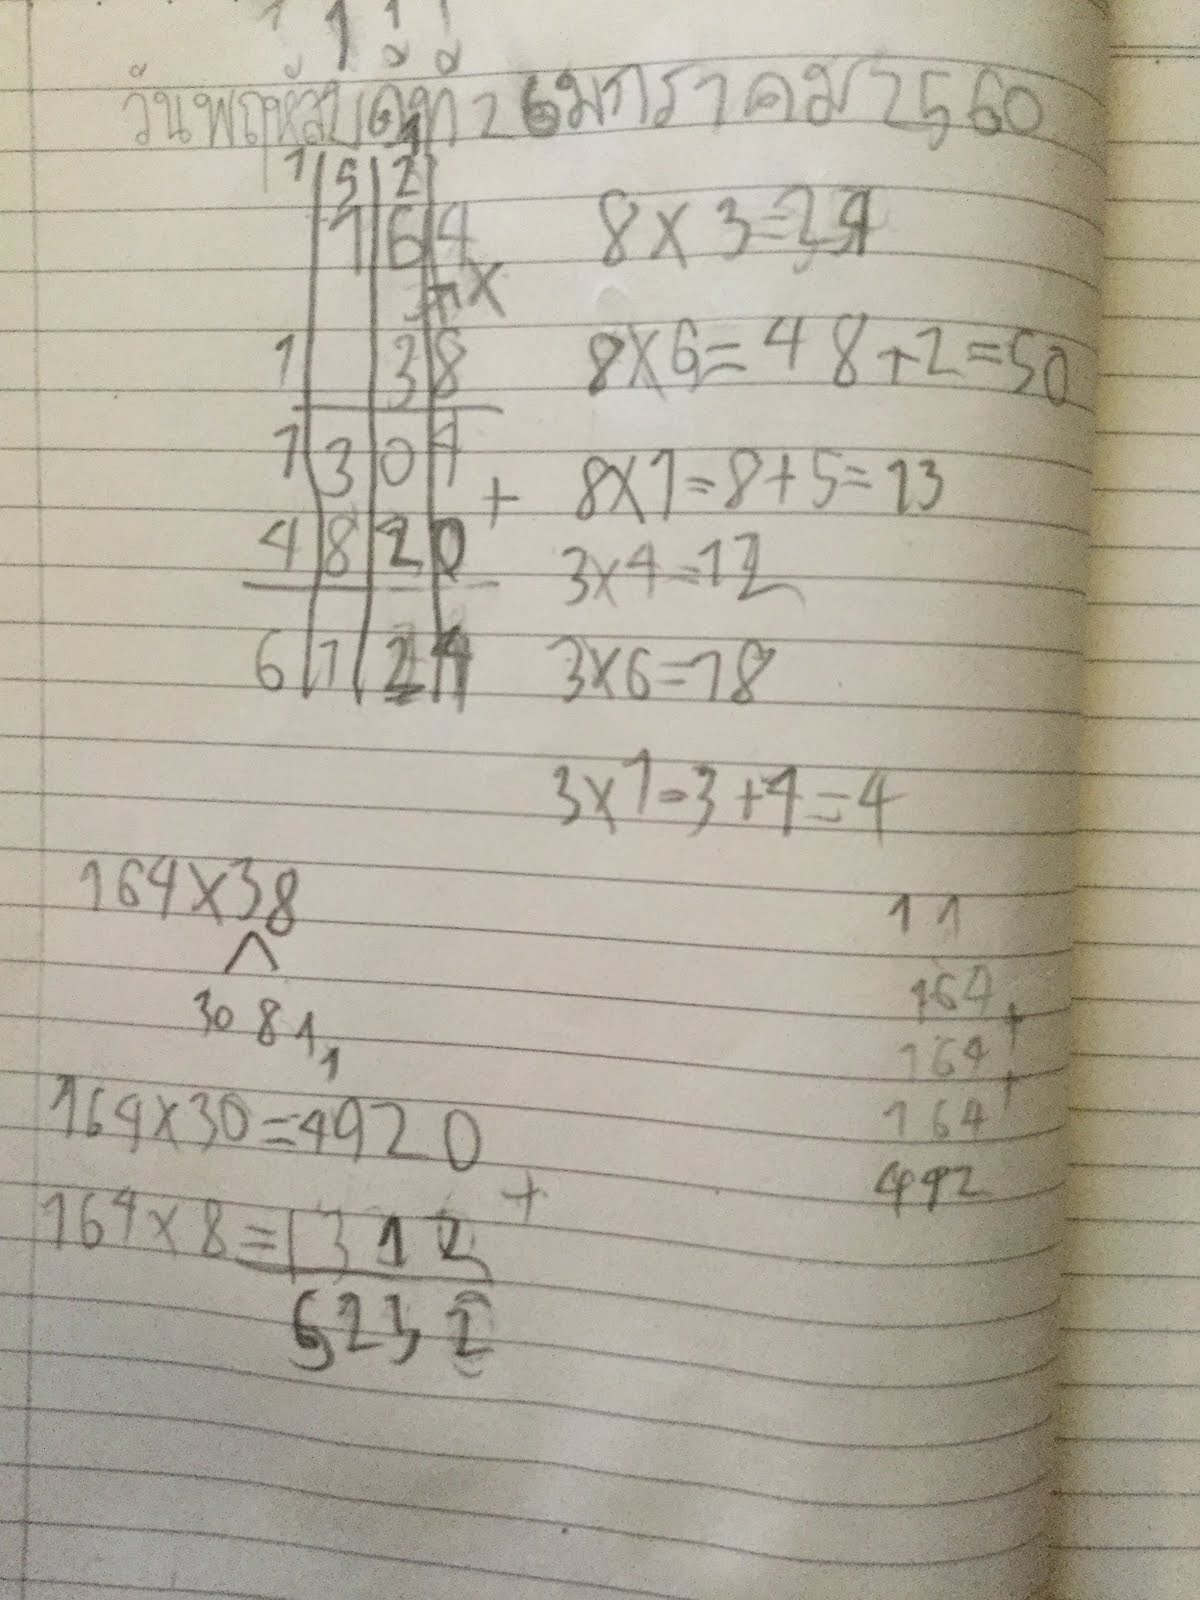 1 1 1 1
วันพฤหัสบดีที่ 26 มกราคม 2560
1 5 2
1 6 4
×
1 3 8
1 3 0 4
+
4 8 2 0
6 1 2 4
8×3=24
8×6=48+2=50
8×1=8+5=13
3×4=12
3×6=18
3×1=3+1=4
164×38
30 8 1 1
164×30=4920
+
164×8=1312
6232
1 1
164
+
164
+
164
492